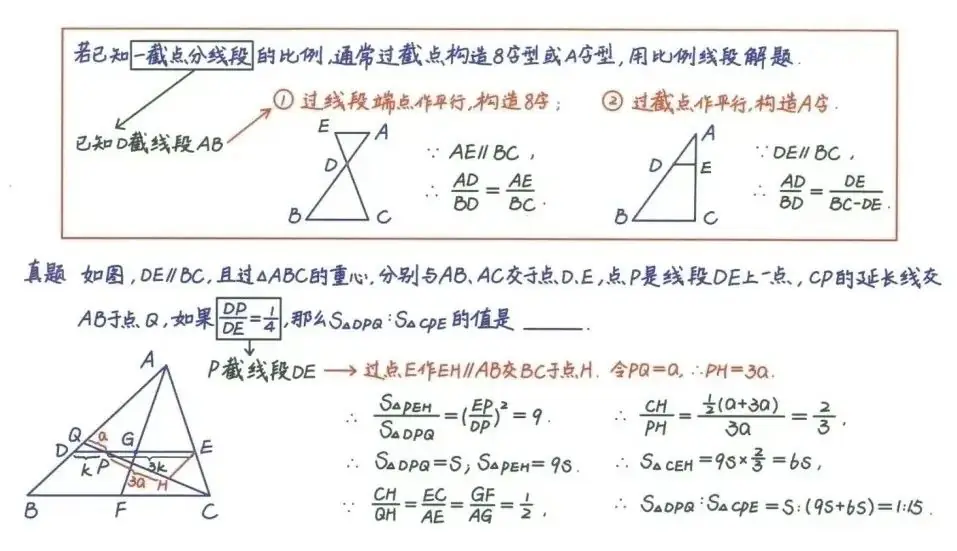 若已知一截点分线段的比例,通常过截点构造8字型或A字型,用比例线段解题.
① 过线段端点作平行,构造8字;
② 过截点作平行,构造A字.
已知D截线段AB
E A
D
B C
∵ AE∥BC,
∴ AD/BD = AE/BC.
A
D E
B C
∵DE∥BC,
∴ AD/BD = DE/(BC-DE).
真题 如图,DE∥BC,且过△ABC的重心,分别与AB、AC交于点D、E,点P是线段DE上一点,CP的延长线交
AB于点Q,如果 DP/DE=1/4,那么S△DPQ:S△CPE的值是 ____.
P截线段DE → 过点E作EH∥AB交BC于点H. 令PQ=a,∴PH=3a.
∴ S△PEH/S△DPQ=(EP/DP)²=9.
∴ S△DPQ=S;S△PEH=9S.
∵ CH/QH=EC/AE=GF/AG=1/2,
∴ CH/PH=½(a+3a)/3a=2/3,
∴ S△CEH=9S×2/3=6S,
∴ S△DPQ:S△CPE=S:(9S+6S)=1:15.
A
Q a G
D E
k P 3k
3a H
B F C